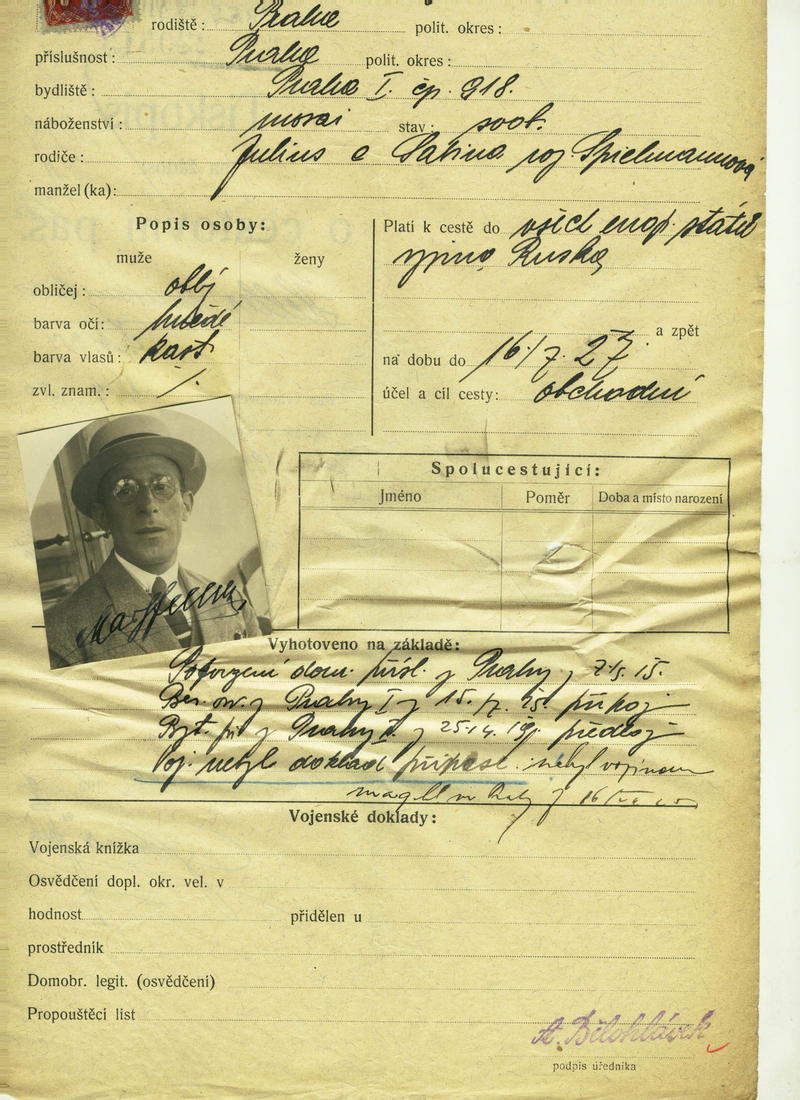 rodiště: Praha polit. okres:
příslušnost: Praha polit. okres:
bydliště: Praha I. čp. 918.
náboženství: mosai stav: svob.
rodiče: Julius a Sabina roz. Spielmannová
manžel (ka):
Popis osoby:
muže ženy
obličej: oblý
barva očí: hnědé
barva vlasů: kašt.
zvl. znam.: /.
Platí k cestě do všech evrop. států
vyjma Ruska
a zpět
na dobu do 16/7. 27.
účel a cíl cesty: obchodní
Spolucestující:
Jméno Poměr Doba a místo narození
Vyhotoveno na základě:
Potvrzení dom. přísl. z Prahy z
z Prahy I z 15. 7. 25.
z Prahy I. z 25.4. předlož
Voj. nebyl doklad připoj. nebyl vojínem
Vojenské doklady:
Vojenská knížka
Osvědčení dopl. okr. vel. v
hodnost přidělen u
prostředník
Domobr. legit. (osvědčení)
Propouštěcí list
A. Bělohlávek
podpis úředníka